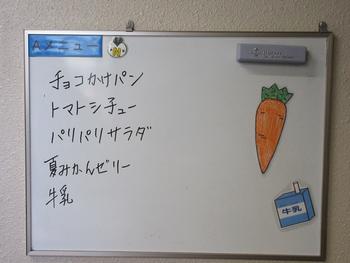 Aメニュー
チョコかけパン
トマトシチュー
パリパリサラダ
夏みかんゼリー
牛乳
牛乳